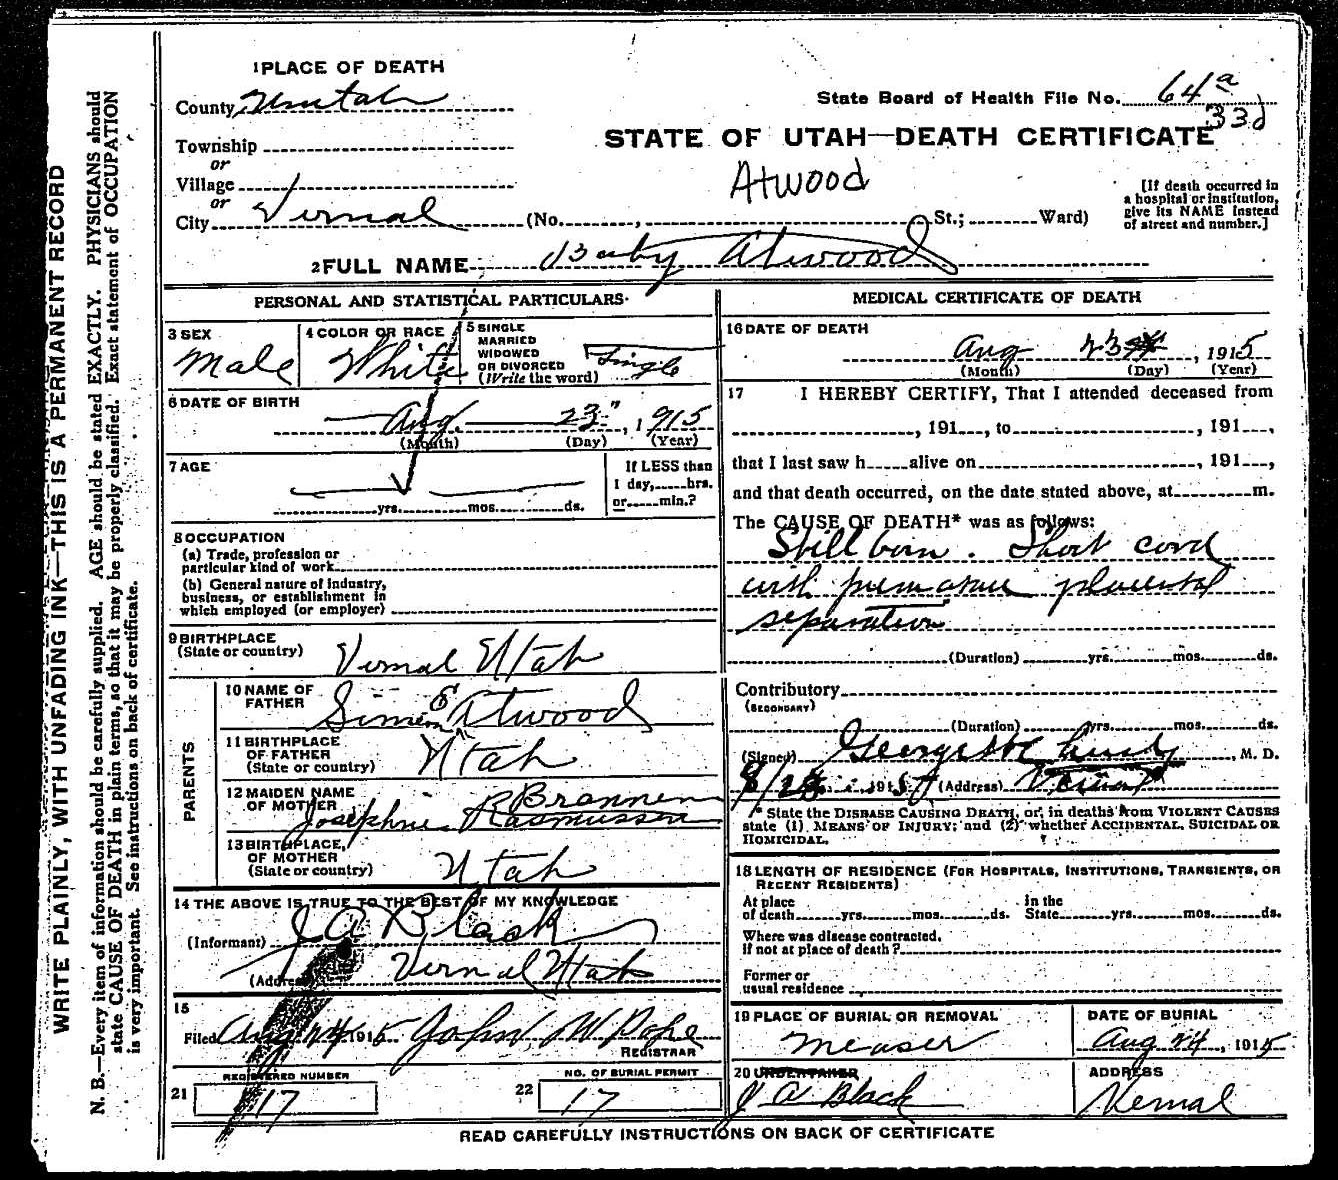 WRITE PLAINLY, WITH UNFADING INK—THIS IS A PERMANENT RECORD
N. B.—Every item of information should be carefully supplied. AGE should be stated EXACTLY. PHYSICIANS should
state CAUSE OF DEATH in plain terms, so that it may be properly classified. Exact statement of OCCUPATION
is very important. See instructions on back of certificate.
1 PLACE OF DEATH
County Uintah
State Board of Health File No. 64a
33d
STATE OF UTAH—DEATH CERTIFICATE
Township
or
Village
or
Atwood
[If death occurred in
a hospital or institution,
give its NAME instead
of street and number.]
City Vernal (No. , St.; Ward)
2 FULL NAME Baby Atwood
PERSONAL AND STATISTICAL PARTICULARS
3 SEX
Male
4 COLOR OR RACE
White
5 SINGLE
MARRIED
WIDOWED
OR DIVORCED
(Write the word)
Single
6 DATE OF BIRTH
Aug. 23", 1915
(Month) (Day) (Year)
7 AGE
yrs. mos. ds.
If LESS than
1 day, hrs.
or min.?
8 OCCUPATION
(a) Trade, profession or
particular kind of work
(b) General nature of industry,
business, or establishment in
which employed (or employer)
9 BIRTHPLACE
(State or country)
Vernal Utah
PARENTS
10 NAME OF
FATHER
Simeon E Atwood
11 BIRTHPLACE
OF FATHER
(State or country)
Utah
12 MAIDEN NAME
OF MOTHER
Brannen
Josephine Rasmussen
13 BIRTHPLACE,
OF MOTHER
(State or country)
Utah
14 THE ABOVE IS TRUE TO THE BEST OF MY KNOWLEDGE
(Informant) J A Black
(Address) Vernal Utah
15
Filed Aug 24 1915 John W Pope
REGISTRAR
21 REGISTERED NUMBER
17
22 NO. OF BURIAL PERMIT
17
MEDICAL CERTIFICATE OF DEATH
16 DATE OF DEATH
Aug 23, 1915
(Month) (Day) (Year)
17 I HEREBY CERTIFY, That I attended deceased from
, 191 , to , 191 ,
that I last saw h alive on , 191 ,
and that death occurred, on the date stated above, at m.
The CAUSE OF DEATH* was as follows:
Still born. Short cord
with premature placental
separation
(Duration) yrs. mos. ds.
Contributory
(SECONDARY)
(Duration) yrs. mos. ds.
(Signed) George , M. D.
8/ 191 (Address) Vernal
* State the DISEASE CAUSING DEATH, or, in deaths from VIOLENT CAUSES
state (1) MEANS OF INJURY; and (2) whether ACCIDENTAL, SUICIDAL OR
HOMICIDAL.
18 LENGTH OF RESIDENCE (FOR HOSPITALS, INSTITUTIONS, TRANSIENTS, OR
RECENT RESIDENTS)
At place
of death yrs. mos. ds.
in the
State yrs. mos. ds.
Where was disease contracted,
if not at place of death?
Former or
usual residence
19 PLACE OF BURIAL OR REMOVAL
Measer
DATE OF BURIAL
Aug 24, 1915
20 UNDERTAKER
J A Black
ADDRESS
Vernal
READ CAREFULLY INSTRUCTIONS ON BACK OF CERTIFICATE